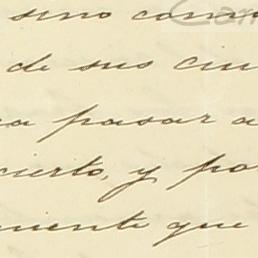 sino com
de sus ciu
a pasar a
cierto, y pa
mente que